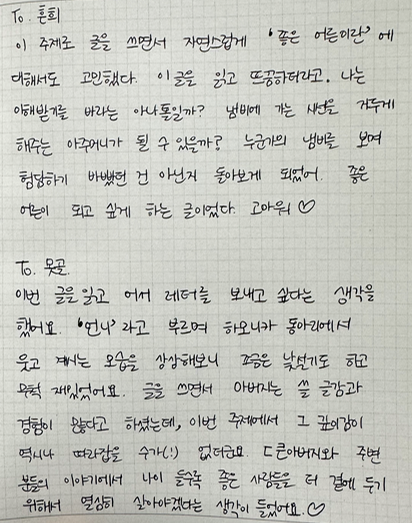 To. 흔희
이 주제로 글을 쓰면서 자연스럽게 '좋은 어른이란' 에
대해서도 고민했다. 이 글을 읽고 뜨끔하더라고. 나는
이해받기를 바라는 아나톨일까? 냄비에 가는 시선을 거두게
해주는 아주머니가 될 수 있을까? 누군가의 냄비를 보며
험담하기 바빴던 건 아닌지 돌아보게 되었어. 좋은
어른이 되고 싶게 하는 글이었다. 고마워 ♡
To. 못골
이번 글을 읽고 어서 레터를 보내고 싶다는 생각을
했어요. '언니' 라고 부르며 하모니카 동아리에서
웃고 계시는 모습을 상상해보니 조금은 낯설기도 하고
무척 재밌었어요. 글을 쓰면서 아버지는 쓸 글감과
경험이 많다고 하셨는데, 이번 주제에서 그 깊이감이
역시나 따라잡을 수가(!) 없더군요. 큰아버지와 주변
분들의 이야기에서 나이 들수록 좋은 사람들을 더 곁에 두기
위해서 열심히 살아야겠다는 생각이 들었어요. ♡